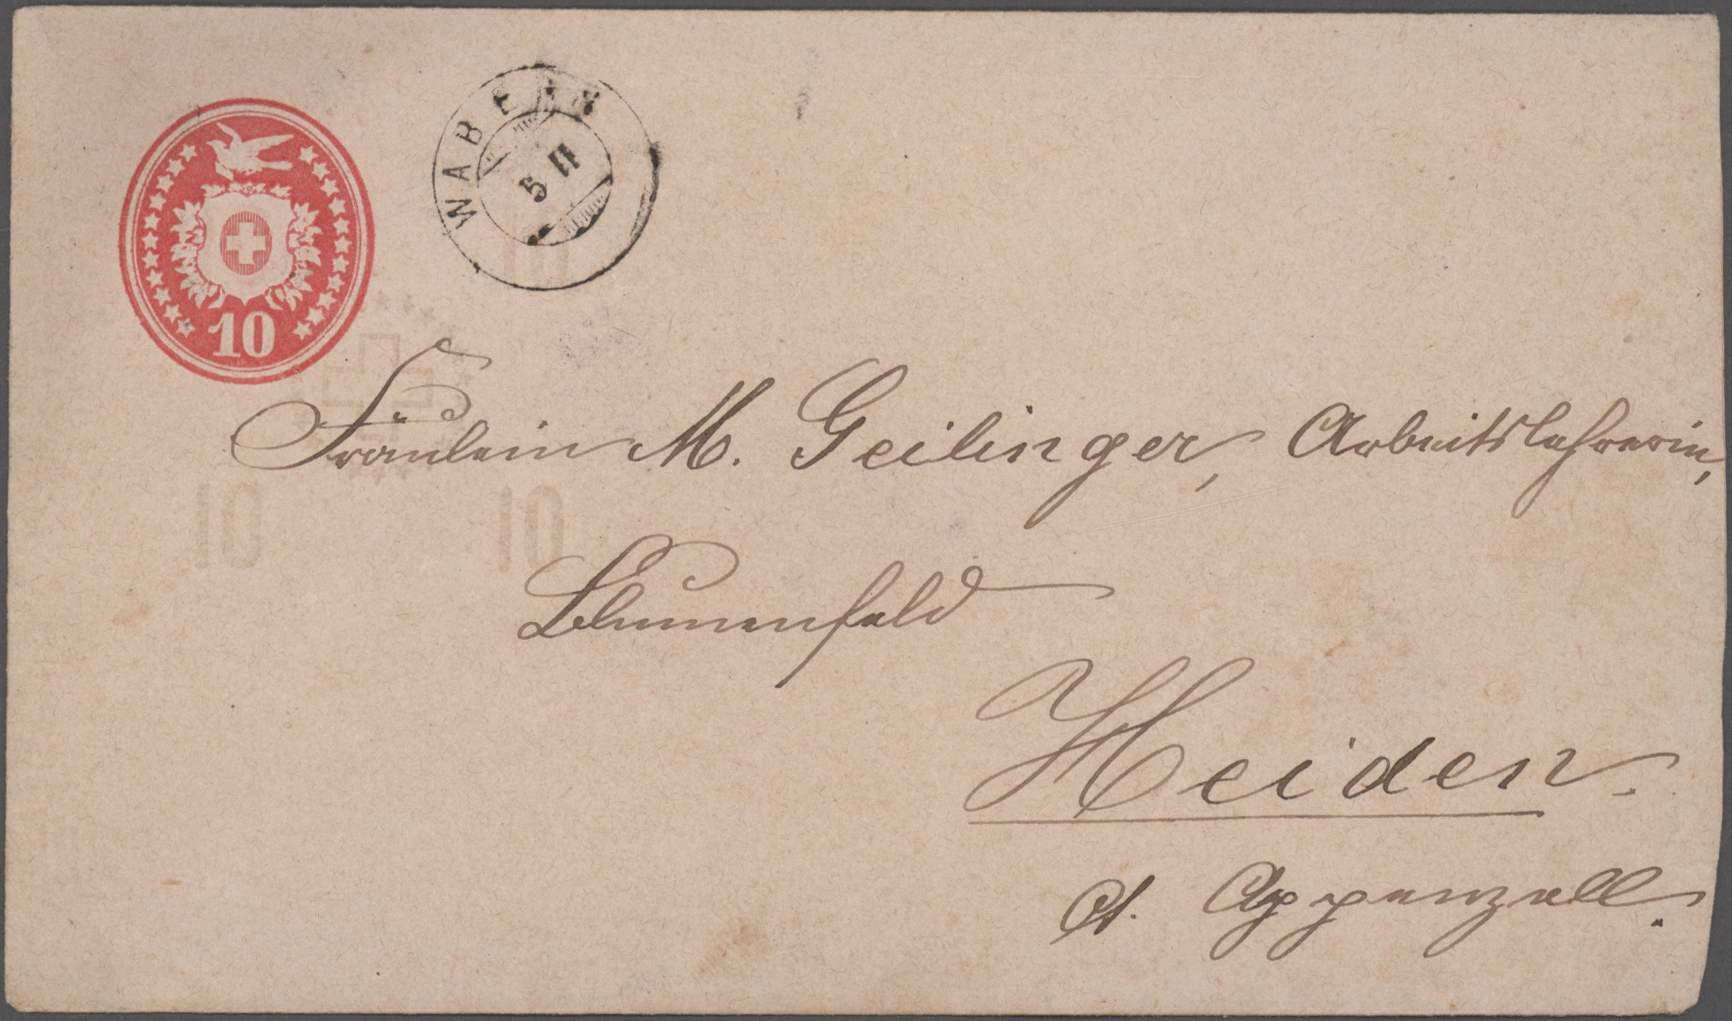 10
WABERN
5 II
Fräulein M. Geilinger, Arbeitslehrerin,
Blumenfeld
Heiden.
Ct. Appenzell.
10
10
10